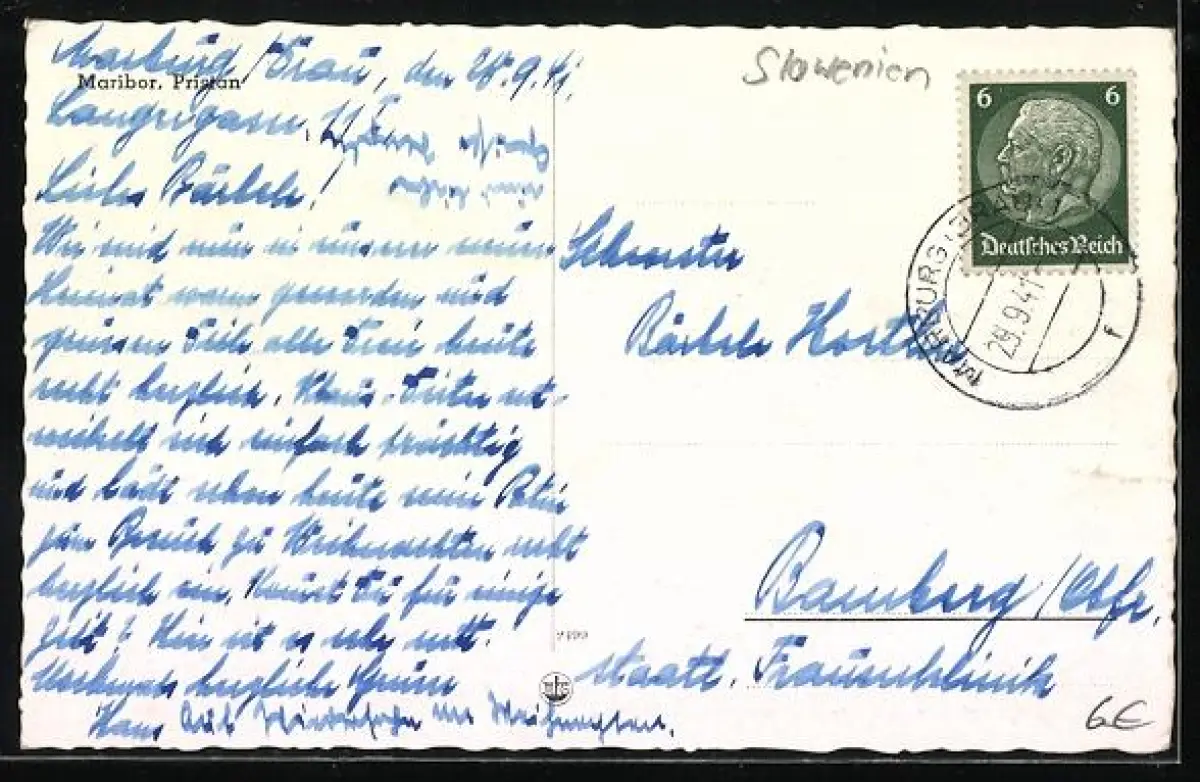 Marburg / Drau, den 28.9.41.
Maribor, Pristan
Langegasse, 11
Liebes Bärbele!
Wir sind nun in unserer neuen
Heimat warm geworden und
grüssen Dich alle Drei heute
recht herzlich. Klaus-Dieter ent-
wickelt sich einfach prächtig
und lädt schon heute seine Patin
zum Besuch zu Weihnachten recht
herzlich ein. Kommst Du für einige
Zeit? Hier ist es sehr nett.
Nochmals herzliche Grüsse
Hans Auf Wiedersehn an Weihnachten.
Slowenien
6 6
Deutsches Reich
MARBURG (DRAU)
29.9.41
f
Schwester
Bärbele
Bamberg / Obfr.
staatl. Frauenklinik
6€